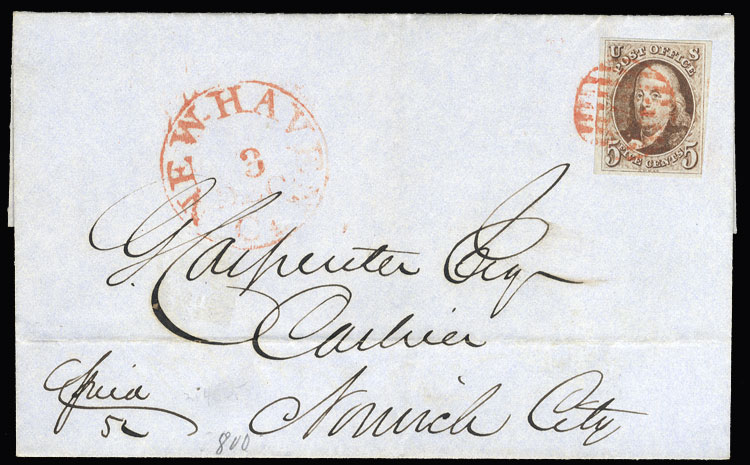 U S
POST OFFICE
5 FIVE CENTS 5
NEW HAVEN
3
CT
G Carpenter Esq
Cashier
Norwich City
Paid
800